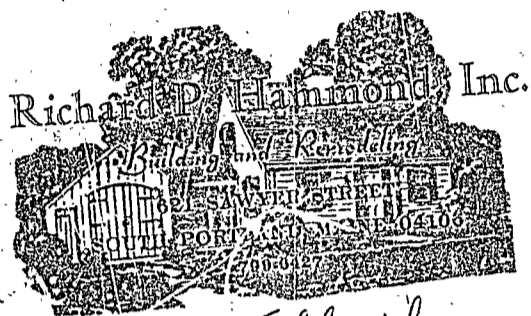 Richard P. Hammond, Inc.
Building and Remodeling
621 SAWYER STREET
SOUTH PORTLAND, MAINE 04106